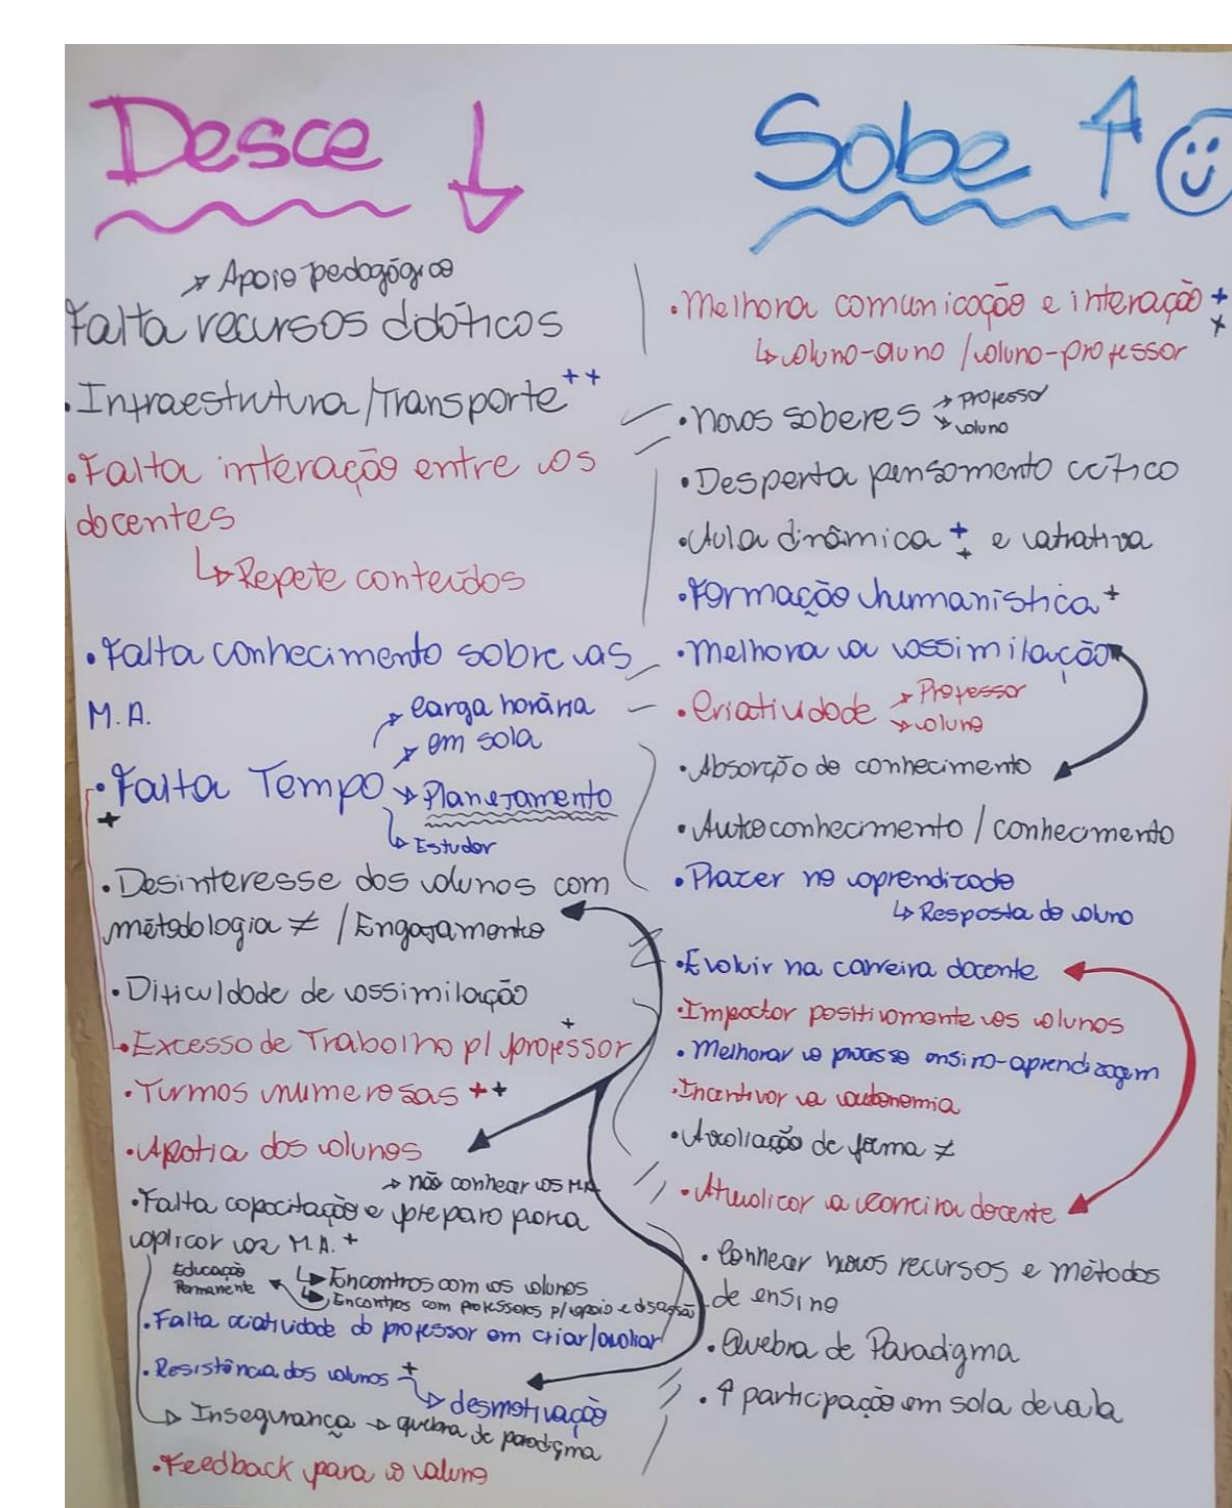 Desce ↓
→ Apoio pedagógico
Falta recursos didáticos
• Infraestrutura/Transporte ++
• Falta interação entre os
docentes
↳ Repete conteúdos
• Falta conhecimento sobre as
M.A.
→ Carga horária
→ em sala
• Falta Tempo → Planejamento
+
↳ Estudar
• Desinteresse dos alunos com
metodologia ≠ / Engajamento
• Dificuldade de assimilação
• Excesso de Trabalho p/ professor +
• Turmas numerosas ++
• Apatia dos alunos
→ não conhecer as M.A.
• Falta capacitação e preparo para
aplicar as M.A. +
Educação
Permanente
↳ Encontros com os alunos
↳ Encontros com professores p/ apoio e discussão
• Falta criatividade do professor em criar/avaliar
• Resistência dos alunos +
↳ desmotivação
→ Insegurança → quebra de paradigma
• Feedback para o aluno
Sobe ↑
• Melhora comunicação e interação + +
↳ aluno-aluno / aluno-professor
• Novos saberes → professor
→ aluno
• Desperta pensamento crítico
• Aula dinâmica + + e atrativa
• Formação humanística +
• Melhora a assimilação
• Criatividade → Professor
→ aluno
• Absorção de conhecimento
• Autoconhecimento / conhecimento
• Prazer no aprendizado
↳ Resposta do aluno
• Evoluir na carreira docente
• Impactar positivamente os alunos
• Melhorar o processo ensino-aprendizagem
• Incentivar a autonomia
• Avaliação de forma ≠
• Atualizar a carreira docente
• Conhecer novos recursos e métodos
de ensino
• Quebra de Paradigma
• ↑ participação em sala de aula